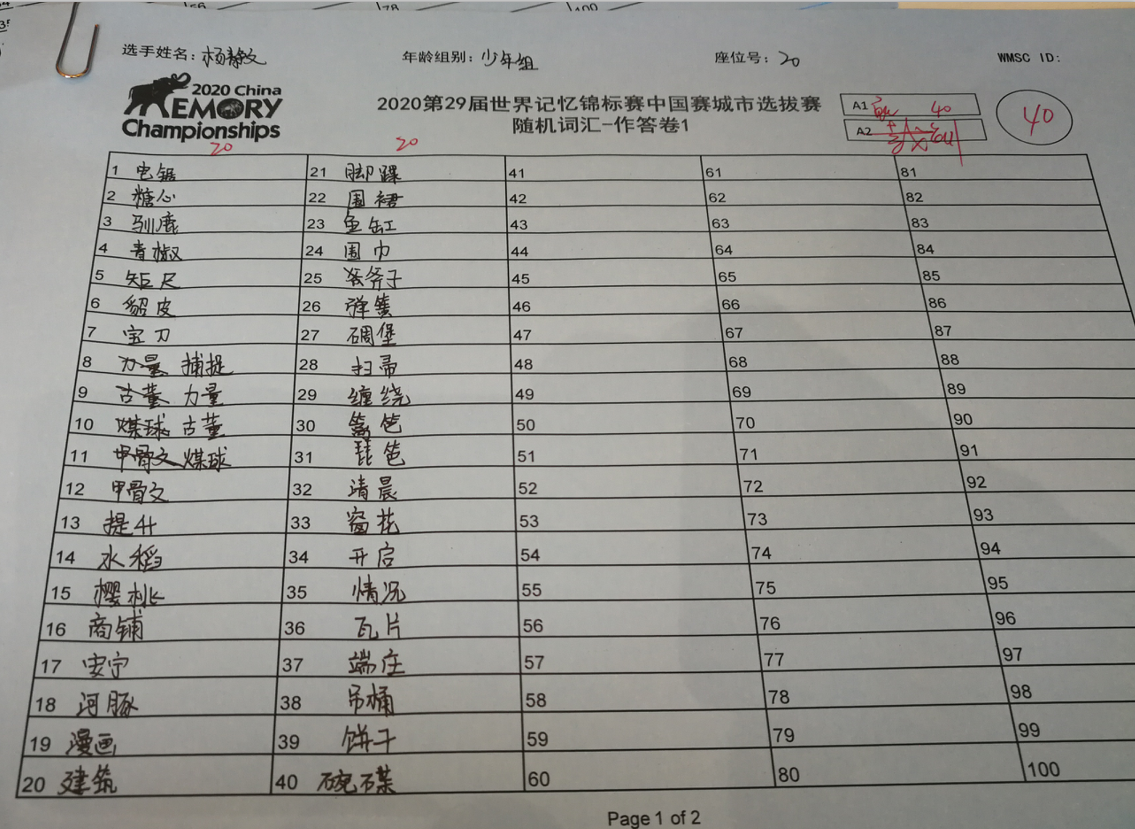 选手姓名: 杨静文 年龄组别: 少年组 座位号: 20 WMSC ID:
2020 China
MEMORY
Championships
2020第29届世界记忆锦标赛中国赛城市选拔赛
随机词汇-作答卷1
A1 40
A2
40
20 20
1 电锯 21 脚踝 41 61 81
2 糖心 22 围裙 42 62 82
3 驯鹿 23 鱼缸 43 63 83
4 青椒 24 围巾 44 64 84
5 矩尺 25 爷爷子 45 65 85
6 貂皮 26 弹簧 46 66 86
7 宝刀 27 碉堡 47 67 87
8 力量 捕捉 28 扫帚 48 68 88
9 古董 力量 29 缠绕 49 69 89
10 煤球 古董 30 篱笆 50 70 90
11 甲骨文 煤球 31 琵笆 51 71 91
12 甲骨文 32 清晨 52 72 92
13 提升 33 窗花 53 73 93
14 水稻 34 开启 54 74 94
15 樱桃 35 情况 55 75 95
16 商铺 36 瓦片 56 76 96
17 安宁 37 端庄 57 77 97
18 河豚 38 吊桶 58 78 98
19 漫画 39 饼干 59 79 99
20 建筑 40 碗碟 60 80 100
Page 1 of 2